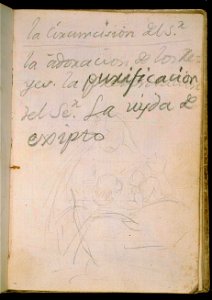 la circumcisión del S.ʳ
la adoracion de los Re-
yes. la purificacion
del Se.ʳ La uyda de
exipto